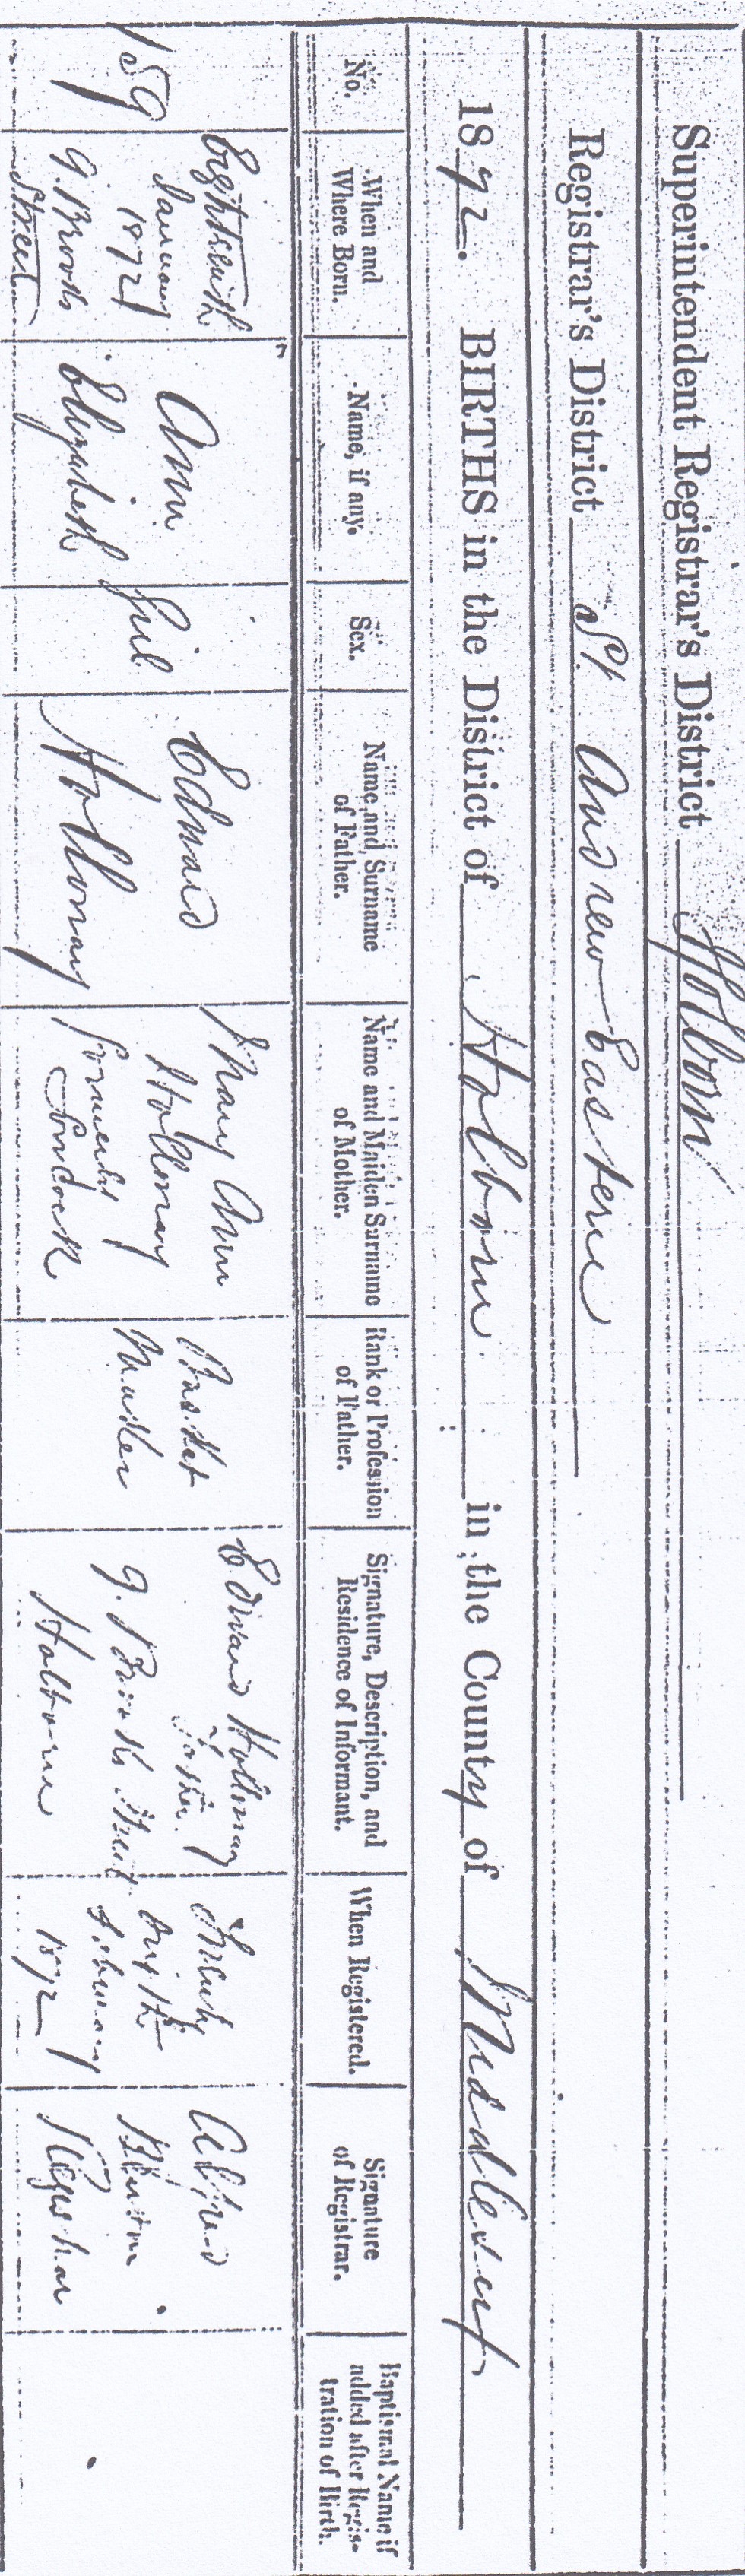 Superintendent Registrar's District Holborn
Registrar's District St. Andrew Eastern
1872. BIRTHS in the District of Holborn in the County of Middlesex
No.
When and
Where Born.
Name, if any.
Sex.
Name and Surname
of Father.
Name and Maiden Surname
of Mother.
Rank or Profession
of Father.
Signature, Description, and
Residence of Informant.
When Registered.
Signature
of Registrar.
Baptismal Name if
added after Regis-
tration of Birth.
159
Eighteenth
January
1872
9. Brooks
Street
Ann
Elizabeth
Girl
Edward
Holloway
Mary Ann
Holloway
formerly
Basket
Maker
Edward Holloway
Father
9. Brooks Street
Holborn
Twenty
eighth
February
1872
Alfred
Registrar